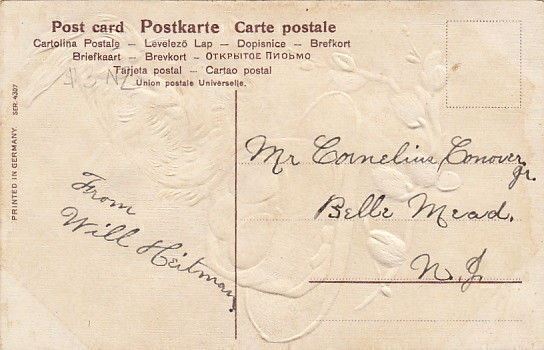 Post card Postkarte Carte postale
Cartolina Postale – Levelező Lap – Dopisnice – Brefkort
Briefkaart – Brevkort – ОТКРЫТОЕ ПИСЬМО
Tarjeta postal – Cartao postal
Union postale Universelle.
PRINTED IN GERMANY. SER. 4307
From
Will Heitman
Mr Cornelius Conover
Jr.
Belle Mead.
N. J.